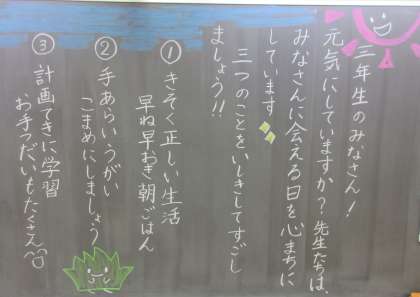 三年生のみなさん!
元気にしていますか?先生たちは、
みなさんに会える日を心まちに
しています
三つのことをいしきしてすごし
ましょう!!
①きそく正しい生活
早ね早おき朝ごはん
②手あらいうがい
こまめにしましょう
③計画てきに学習
お手つだいもたくさん^^